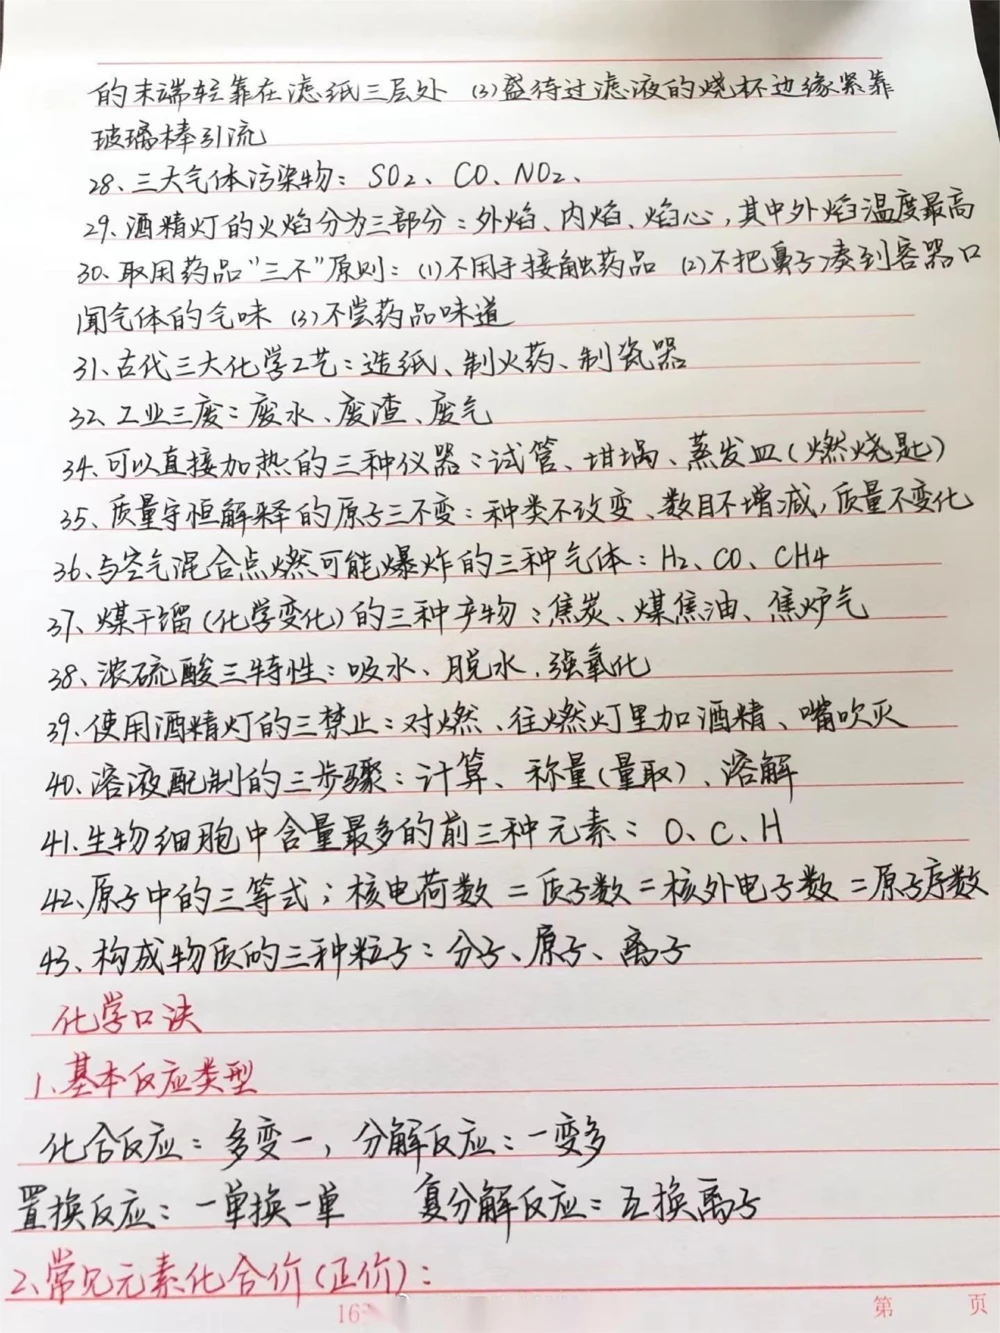 的末端轻靠在滤纸三层处 (3)盛待过滤液的烧杯边缘紧靠
玻璃棒引流
28、三大气体污染物：SO2、CO、NO2、
29、酒精灯的火焰分为三部分：外焰、内焰、焰心，其中外焰温度最高
30、取用药品"三不"原则：(1)不用手接触药品 (2)不把鼻子凑到容器口
闻气体的气味 (3)不尝药品味道
31、古代三大化学工艺：造纸、制火药、制瓷器
32、工业三废：废水、废渣、废气
34、可以直接加热的三种仪器：试管、坩埚、蒸发皿(燃烧匙)
35、质量守恒解释的原子三不变：种类不改变、数目不增减，质量不变化
36、与空气混合点燃可能爆炸的三种气体：H2、CO、CH4
37、煤干馏(化学变化)的三种产物：焦炭、煤焦油、焦炉气
38、浓硫酸三特性：吸水、脱水、强氧化
39、使用酒精灯的三禁止：对燃、往燃灯里加酒精、嘴吹灭
40、溶液配制的三步骤：计算、称量(量取)、溶解
41、生物细胞中含量最多的前三种元素：O、C、H
42、原子中的三等式：核电荷数=质子数=核外电子数=原子序数
43、构成物质的三种粒子：分子、原子、离子
化学口诀
1、基本反应类型
化合反应：多变一，分解反应：一变多
置换反应：一单换一单 复分解反应：互换离子
2、常见元素化合价(正价)：
16
第 页